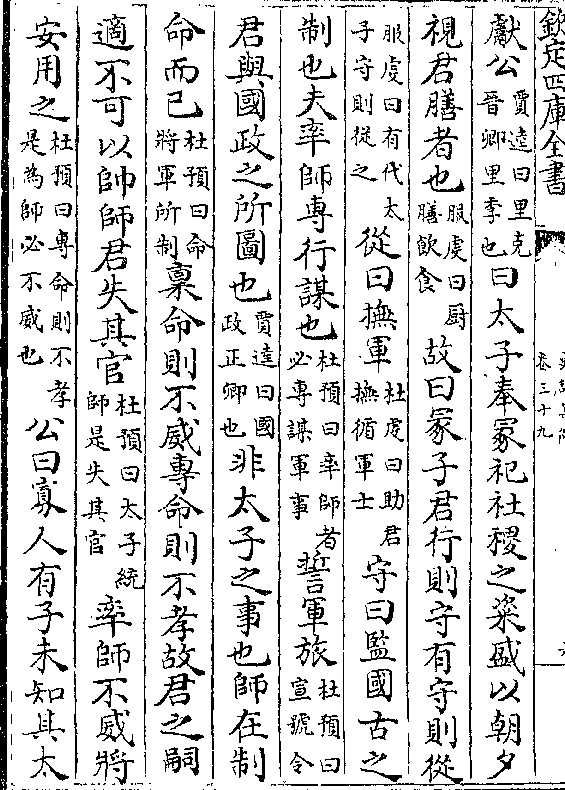 欽定四庫全書
卷三十九
獻公賈逵曰里克晉卿里季也曰太子奉冡祀社稷之粢盛以朝夕
視君膳者也服虔曰厨膳飲食故曰冡子君行則守有守則從
服虔曰有代太子守則從之從曰撫軍杜虔曰助君撫循軍士守曰監國古之
制也夫率師專行謀也杜預曰率師者必專謀軍事誓軍旅杜預曰宣號令
君與國政之所圖也賈逵曰國政正卿也非太子之事也師在制
命而已杜預曰命將軍所制稟命則不威專命則不孝故君之嗣
適不可以帥師君失其官杜預曰太子統師是失其官率師不威將
安用之杜預曰專命則不孝是為師必不威也公曰寡人有子未知其太